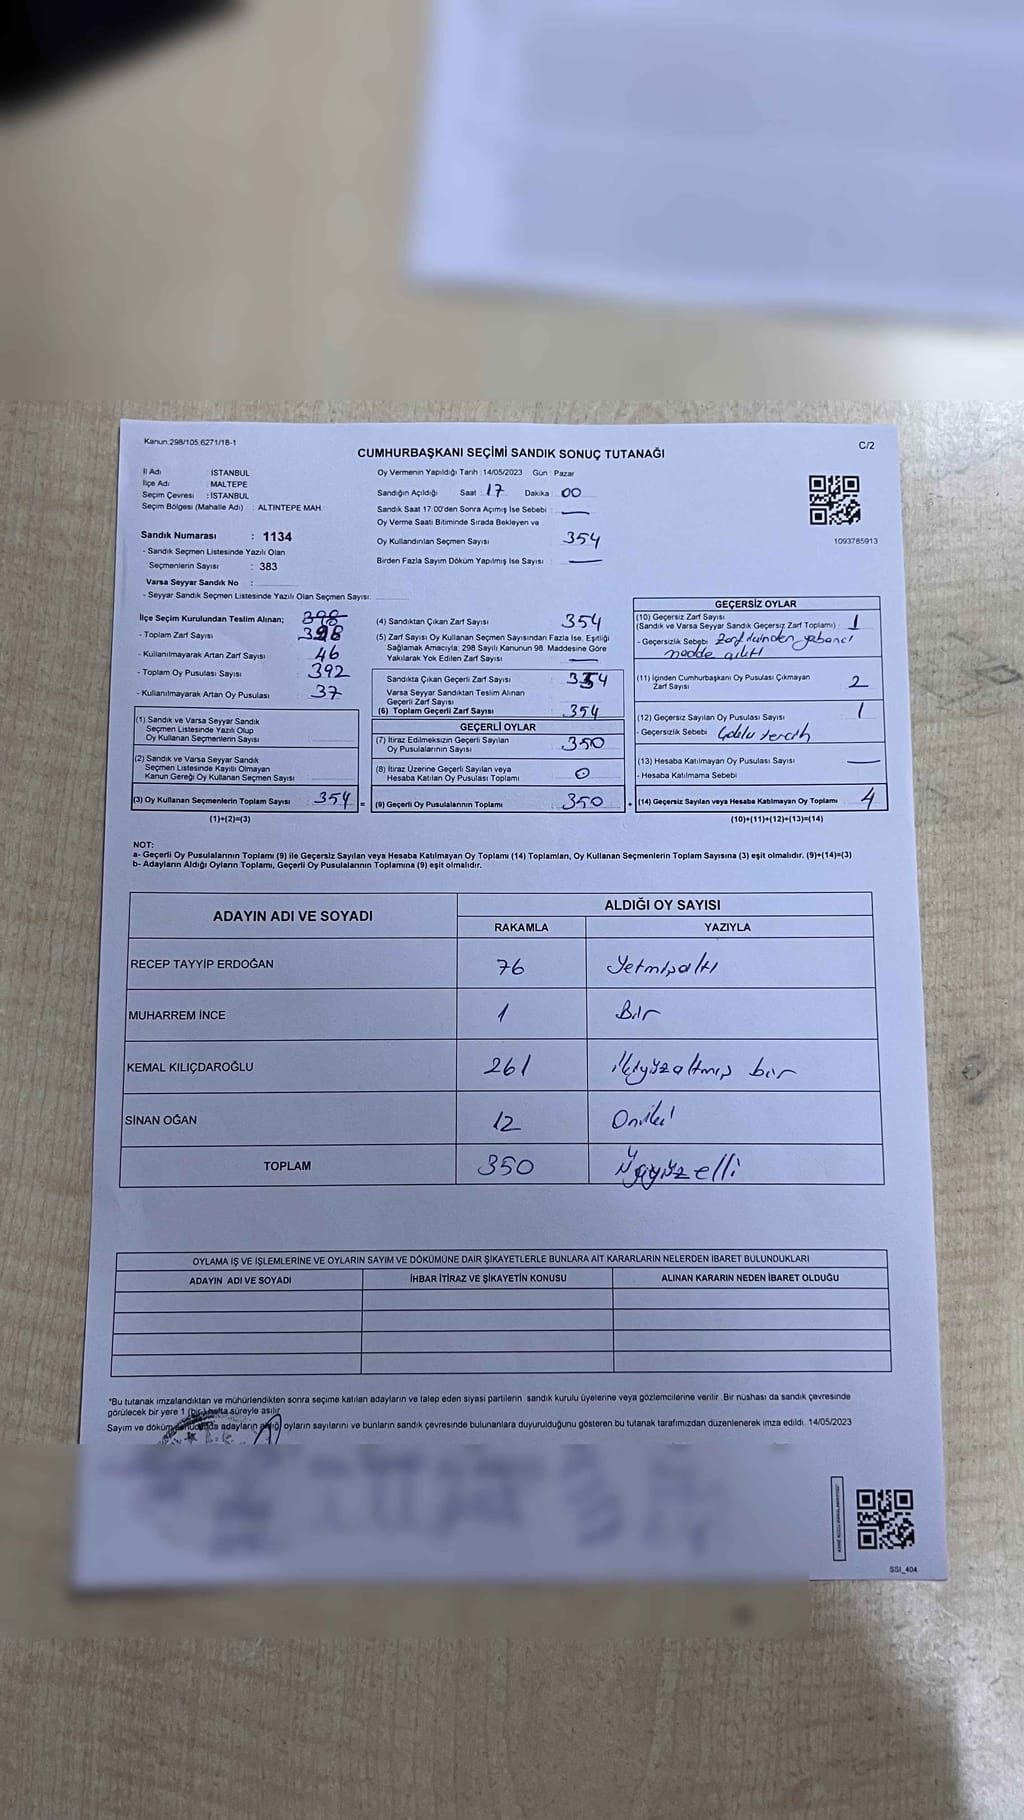 Kanun.298/105.6271/18-1
C/2
CUMHURBAŞKANI SEÇİMİ SANDIK SONUÇ TUTANAĞI
İl Adı İSTANBUL
İlçe Adı : MALTEPE
Seçim Çevresi : İSTANBUL
Seçim Bölgesi (Mahalle Adı) : ALTINTEPE MAH.
Sandık Numarası : 1134
- Sandık Seçmen Listesinde Yazılı Olan
Seçmenlerin Sayısı : 383
Varsa Seyyar Sandık No :
- Seyyar Sandık Seçmen Listesinde Yazılı Olan Seçmen Sayısı:
Oy Vermenin Yapıldığı Tarih :14/05/2023 Gün : Pazar
Sandığın Açıldığı Saat : 17 Dakika : 00
Sandık Saat 17:00'den Sonra Açımış İse Sebebi : —
Oy Verme Saati Bitiminde Sırada Bekleyen ve
Oy Kullandırılan Seçmen Sayısı 354
Birden Fazla Sayım Döküm Yapılmış İse Sayısı : —
1093785913
İlçe Seçim Kurulundan Teslim Alınan;
- Toplam Zarf Sayısı 398
- Kullanılmayarak Artan Zarf Sayısı 46
- Toplam Oy Pusulası Sayısı 392
- Kullanılmayarak Artan Oy Pusulası 37
(1) Sandık ve Varsa Seyyar Sandık
Seçmen Listesinde Yazılı Olup
Oy Kullanan Seçmenlerin Sayısı
(2) Sandık ve Varsa Seyyar Sandık
Seçmen Listesinde Kayıtlı Olmayan
Kanun Gereği Oy Kullanan Seçmen Sayısı
(3) Oy Kullanan Seçmenlerin Toplam Sayısı 354 =
(1)+(2)=(3)
(4) Sandıktan Çıkan Zarf Sayısı 354
(5) Zarf Sayısı Oy Kullanan Seçmen Sayısından Fazla İse, Eşitliği
Sağlamak Amacıyla; 298 Sayılı Kanunun 98. Maddesine Göre
Yakılarak Yok Edilen Zarf Sayısı —
Sandıkta Çıkan Geçerli Zarf Sayısı 354
Varsa Seyyar Sandıktan Teslim Alınan
Geçerli Zarf Sayısı
(6) Toplam Geçerli Zarf Sayısı 354
GEÇERLİ OYLAR
(7) İtiraz Edilmeksizin Geçerli Sayılan
Oy Pusulalarının Sayısı 350
(8) İtiraz Üzerine Geçerli Sayılan veya
Hesaba Katılan Oy Pusulası Toplamı 0
(9) Geçerli Oy Pusulalarının Toplamı 350 +
GEÇERSİZ OYLAR
(10) Geçersiz Zarf Sayısı
(Sandık ve Varsa Seyyar Sandık Geçersiz Zarf Toplamı) : 1
- Geçersizlik Sebebi Zarf içinden yabancı
madde çıktı
(11) İçinden Cumhurbaşkanı Oy Pusulası Çıkmayan
Zarf Sayısı 2
(12) Geçersiz Sayılan Oy Pusulası Sayısı 1
- Geçersizlik Sebebi Çoklu tercih
(13) Hesaba Katılmayan Oy Pusulası Sayısı —
- Hesaba Katılmama Sebebi
(14) Geçersiz Sayılan veya Hesaba Katılmayan Oy Toplamı 4
(10)+(11)+(12)+(13)=(14)
NOT:
a- Geçerli Oy Pusulalarının Toplamı (9) ile Geçersiz Sayılan veya Hesaba Katılmayan Oy Toplamı (14) Toplamları, Oy Kullanan Seçmenlerin Toplam Sayısına (3) eşit olmalıdır. (9)+(14)=(3)
b- Adayların Aldığı Oyların Toplamı, Geçerli Oy Pusulalarının Toplamına (9) eşit olmalıdır.
ADAYIN ADI VE SOYADI
ALDIĞI OY SAYISI
RAKAMLA YAZIYLA
RECEP TAYYİP ERDOĞAN 76 Yetmişaltı
MUHARREM İNCE 1 Bir
KEMAL KILIÇDAROĞLU 261 ikiyüzaltmış bir
SİNAN OĞAN 12 Oniki
TOPLAM 350 Üçyüz elli
OYLAMA İŞ VE İŞLEMLERİNE VE OYLARIN SAYIM VE DÖKÜMÜNE DAİR ŞİKAYETLERLE BUNLARA AİT KARARLARIN NELERDEN İBARET BULUNDUKLARI
ADAYIN ADI VE SOYADI İHBAR İTİRAZ VE ŞİKAYETİN KONUSU ALINAN KARARIN NEDEN İBARET OLDUĞU
*Bu tutanak imzalandıktan ve mühürlendikten sonra seçime katılan adayların ve talep eden siyasi partilerin sandık kurulu üyelerine veya gözlemcilerine verilir. Bir nüshası da sandık çevresinde
görülecek bir yere 1 (bir) hafta süreyle asılır.
Sayım ve döküm adayların oyların sayılarını ve bunların sandık çevresinde bulunanlara duyurulduğunu gösteren bu tutanak tarafımızdan düzenlenerek imza edildi. 14/05/2023
SSİ_404